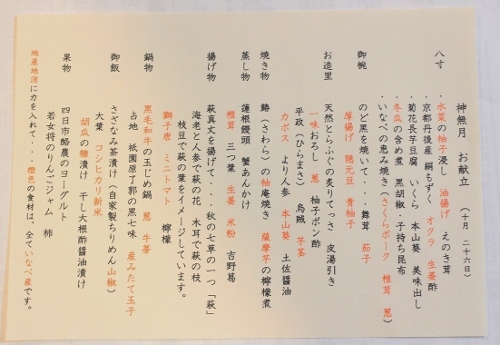 神無月 お献立 (十月 二十六日)
八寸
・水菜の柚子浸し 油揚げ えのき茸
京都丹後産 絹もずく オクラ 生姜酢
菊花長芋豆腐 いくら 本山葵 美味出し
・冬瓜の含め煮 黒胡椒・子持ち昆布
・いなべの恵み焼き(さくらポーク 椎茸 葱)
御椀
のど黒を焼いて・・・舞茸 茄子
厚揚げ 隠元豆 青柚子
お造里
天然とらふぐの炙りてっさ 皮湯引き
一味おろし 葱 柚子ポン酢
平政(ひらまさ) 烏賊 芋茎
カボス より人参 本山葵 土佐醤油
焼き物
鰆(さわら)の柚庵焼き 薩摩芋の檸檬煮
蒸し物
蓮根饅頭 蟹あんかけ
椎茸 三つ葉 生姜 米粉 吉野葛
揚げ物
萩真丈を揚げて・・・秋の七草の一つ「萩」
海老と人参で萩の花 木耳で萩の枝
枝豆で萩の葉をイメージしています。
獅子唐 ミニトマト 檸檬
鍋物
黒毛和牛の玉じめ鍋 葱 牛蒡
占地 祇園原了郭の黒七味 産みたて玉子
御飯
さざなみ茶漬け(自家製ちりめん山椒)
大葉 コシヒカリ新米
胡瓜の糠漬け 干し大根酢醤油漬け
果物
四日市酪農のヨーグルト
若女将のりんごジャム 柿
地産地消に力を入れて・・・橙色の食材は、全ていなべ産です。